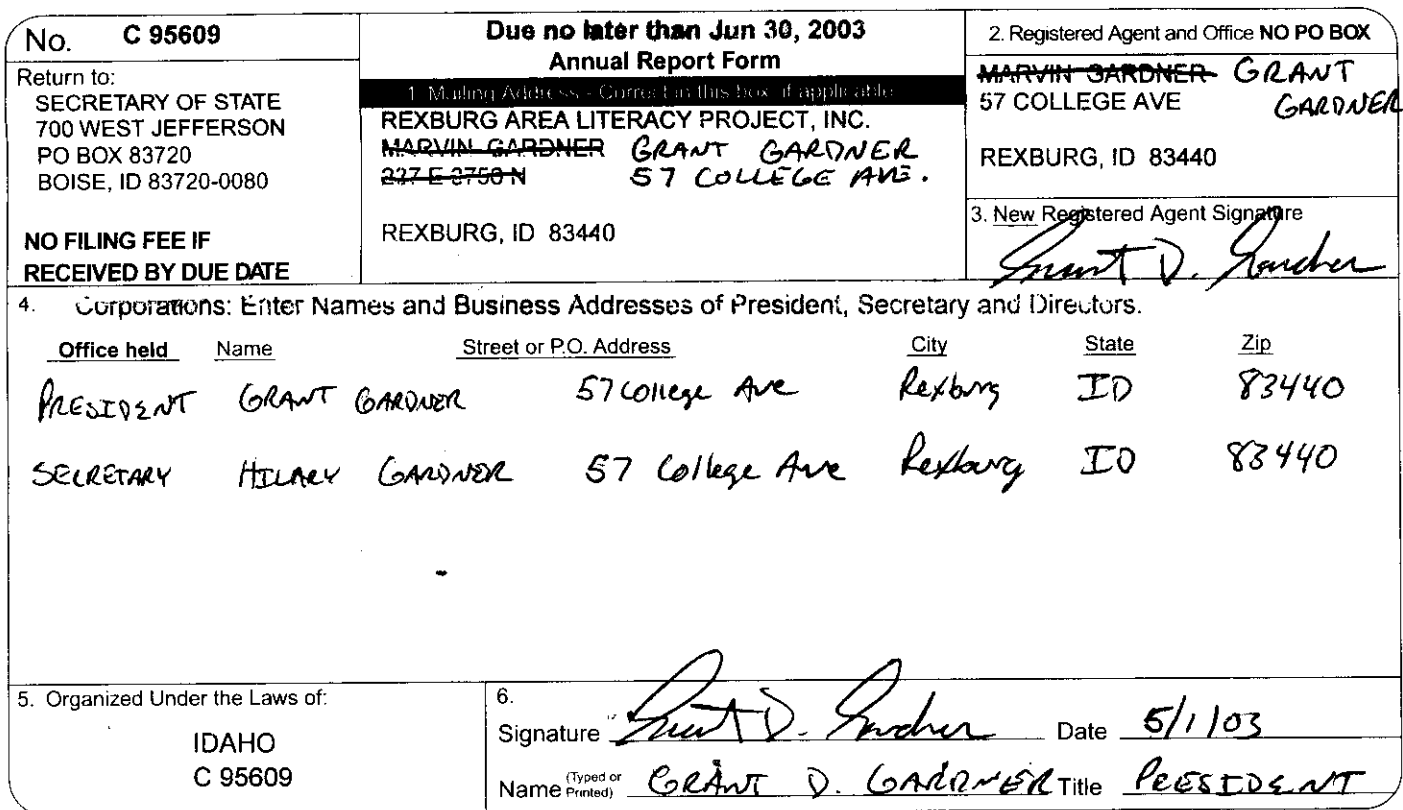 No. C 95609
Return to:
SECRETARY OF STATE
700 WEST JEFFERSON
PO BOX 83720
BOISE, ID 83720-0080
NO FILING FEE IF
RECEIVED BY DUE DATE
Due no later than Jun 30, 2003
Annual Report Form
1. Mailing Address - Correct in this box if applicable
REXBURG AREA LITERACY PROJECT, INC.
MARVIN GARDNER GRANT GARDNER
237 E 3750 N 57 COLLEGE AVE.
REXBURG, ID 83440
2. Registered Agent and Office NO PO BOX
MARVIN GARDNER GRANT
57 COLLEGE AVE GARDNER
REXBURG, ID 83440
3. New Registered Agent Signature
Grant D. Gardner
4. Corporations: Enter Names and Business Addresses of President, Secretary and Directors.
Office held Name Street or P.O. Address City State Zip
PRESIDENT GRANT GARDNER 57 College Ave Rexburg ID 83440
SECRETARY HILARY GARDNER 57 College Ave Rexburg ID 83440
5. Organized Under the Laws of:
IDAHO
C 95609
6.
Signature Grant D. Gardner Date 5/1/03
Name (Typed or Printed) GRANT D. GARDNER Title PRESIDENT